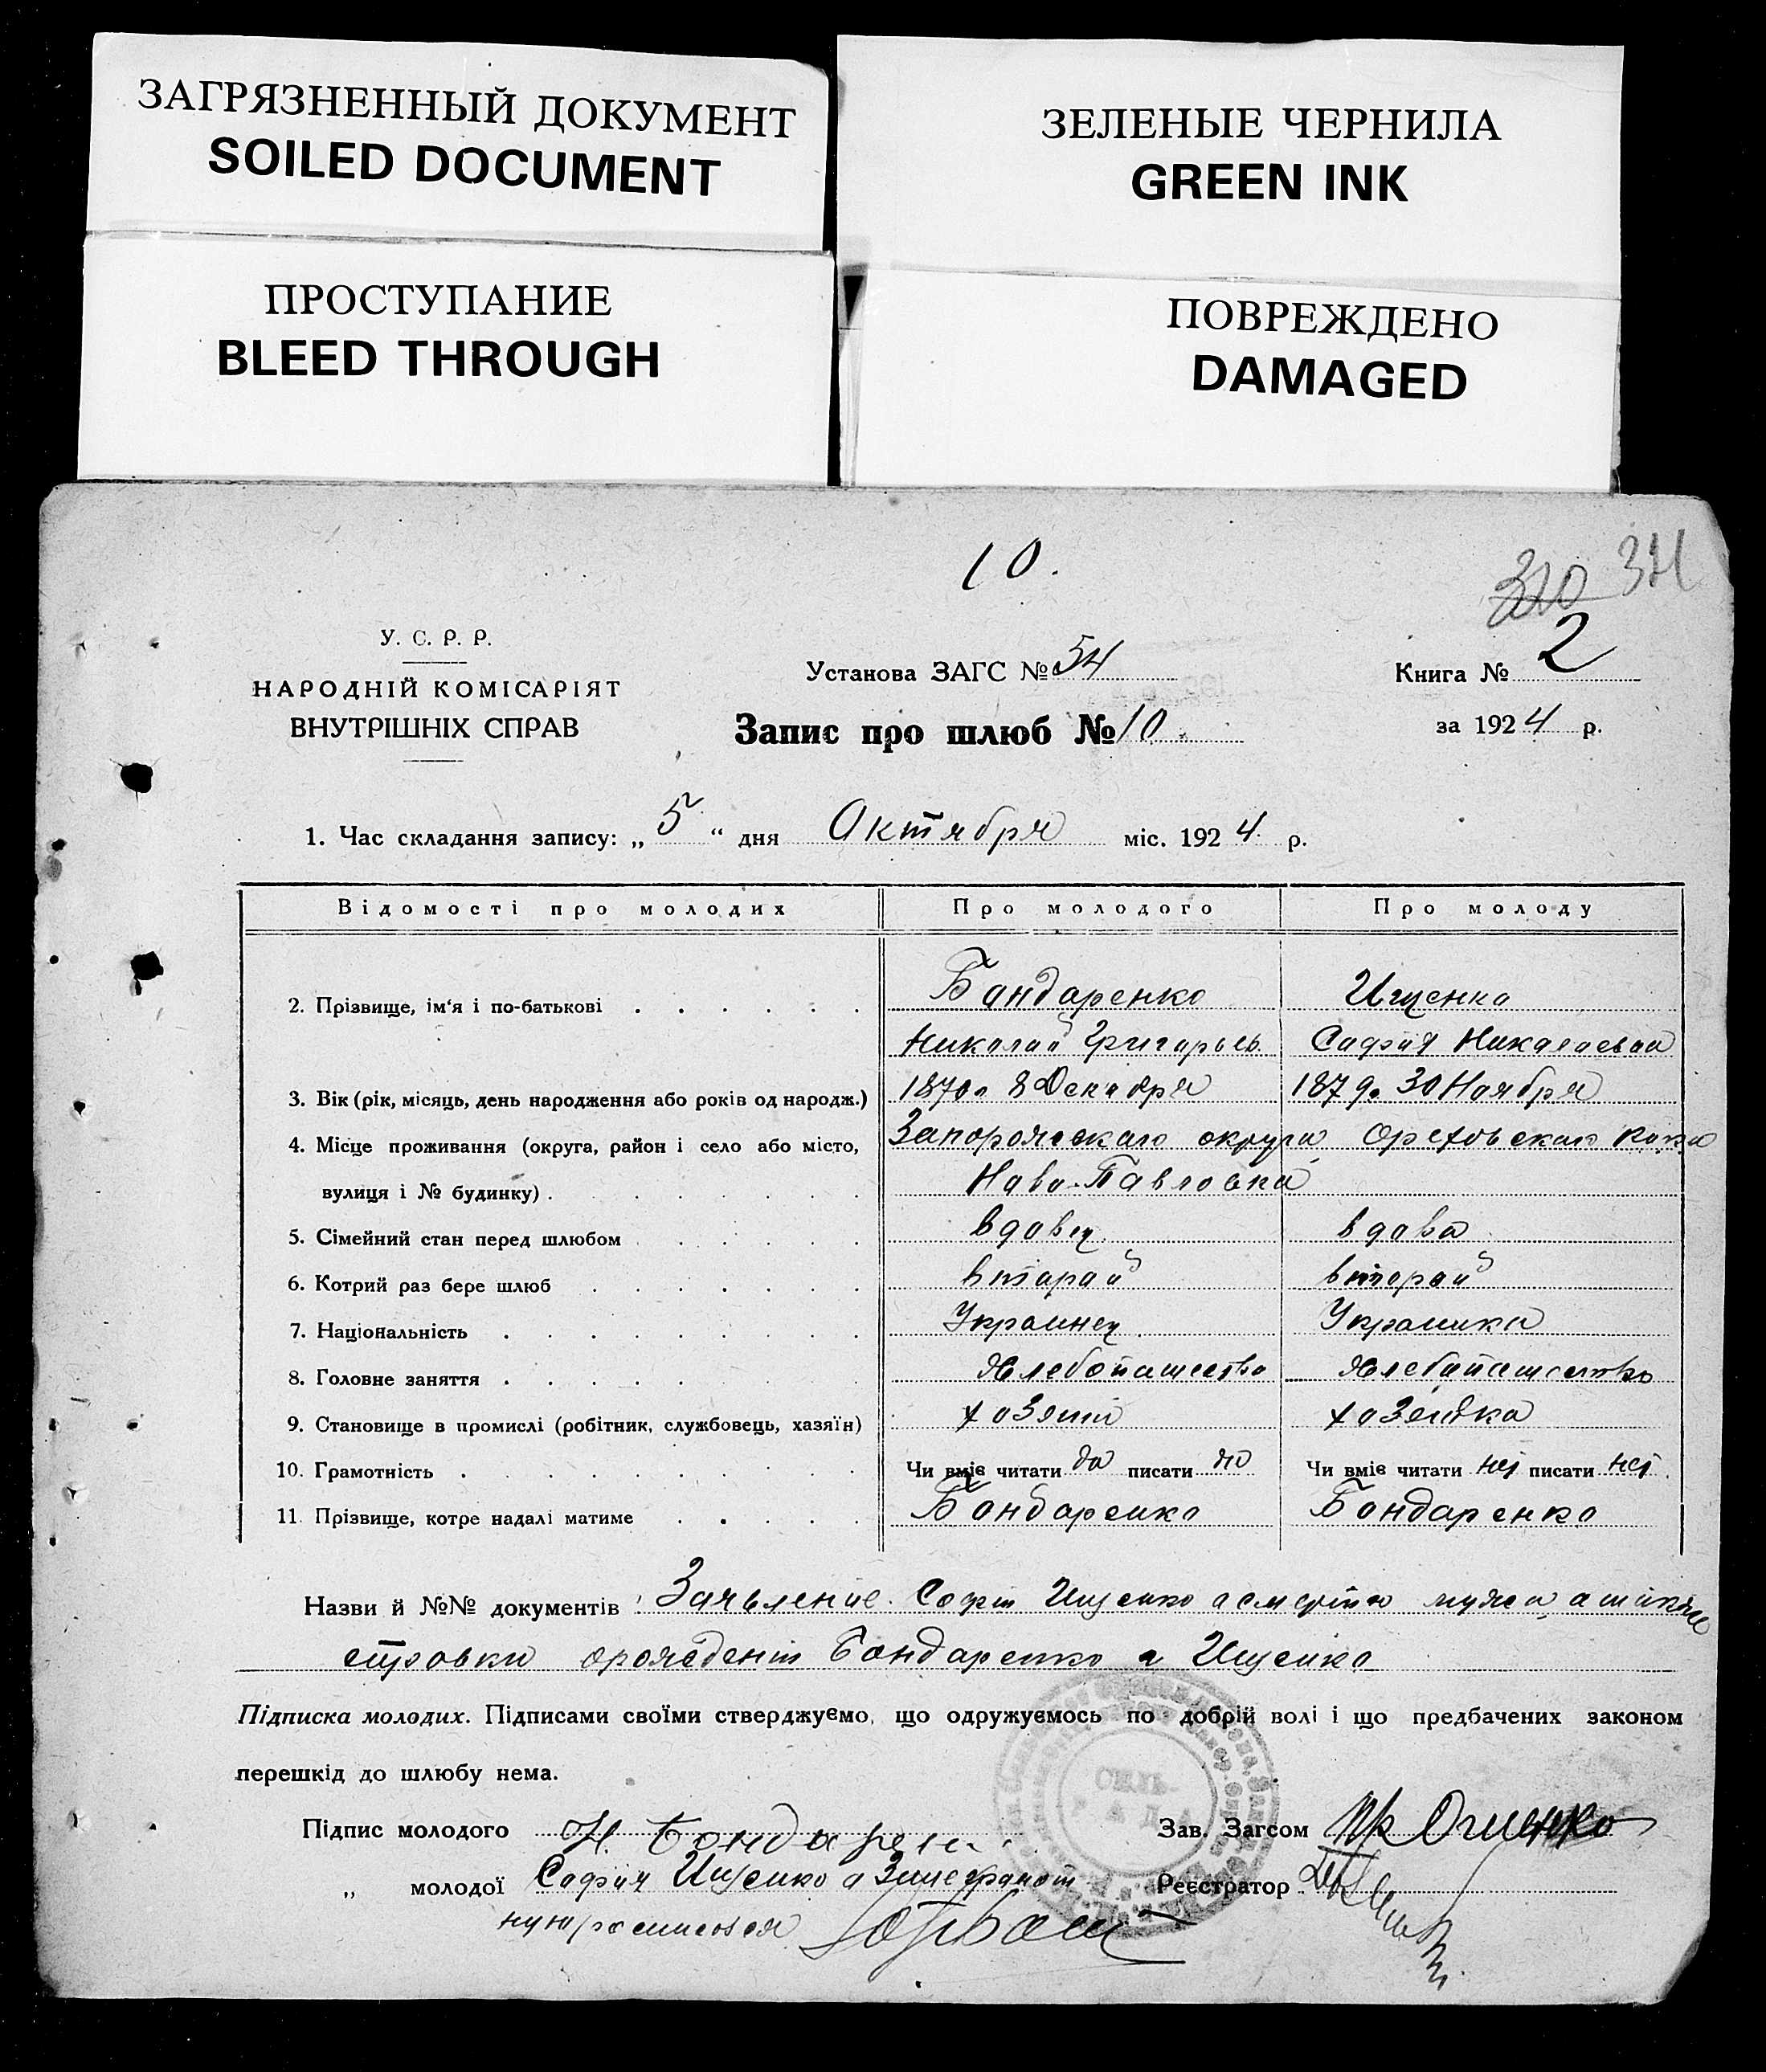 ЗАГРЯЗНЕННЫЙ ДОКУМЕНТ
SOILED DOCUMENT
ЗЕЛЕНЫЕ ЧЕРНИЛА
GREEN INK
ПРОСТУПАНИЕ
BLEED THROUGH
ПОВРЕЖДЕНО
DAMAGED
10.
310
У. С. Р. Р.
НАРОДНІЙ КОМІСАРІЯТ
ВНУТРІШНІХ СПРАВ
Установа ЗАГС № 54
Книга № 2
Запис про шлюб № 10.
за 1924 р.
1. Час складання запису: „5“ дня Октября міс. 1924 р.
Відомості про молодих Про молодого Про молоду
2. Прізвище, ім'я і по-батькові Бандаренко Ищенко
Николай Григарьев. Сафия Никалаевна
3. Вік (рік, місяць, день народження або років од народж.) 1870 8 Декабря 1879. 30 Ноября
4. Місце проживання (округа, район і село або місто, Запорожскаго округа Ореховскаго
вулиця і № будинку). Ново-Павловка
5. Сімейний стан перед шлюбом вдовец вдова
6. Котрий раз бере шлюб втарай вторай
7. Національність Украинец Украинка
8. Головне заняття Хлебопашество Хлебапашество
9. Становище в промислі (робітник, службовець, хазяїн) хозяин хозейка
10. Грамотність Чи вміє читати да писати да Чи вміє читати нет писати нет.
11. Прізвище, котре надалі матиме Бондаренко Бондаренко
Назви й №№ документів: Заявление Софии Ищенко о смерти мужа
о рождении Бондаренко и Ищенко
Підписка молодих. Підписами своїми стверджуємо, що одружуємось по добрій волі і що предбачених законом
перешкід до шлюбу нема.
Підпис молодого Н. Бондарен
Зав. Загсом
„ молодої Сафия Ищенко а За неграмот
Реєстратор
ную росписался